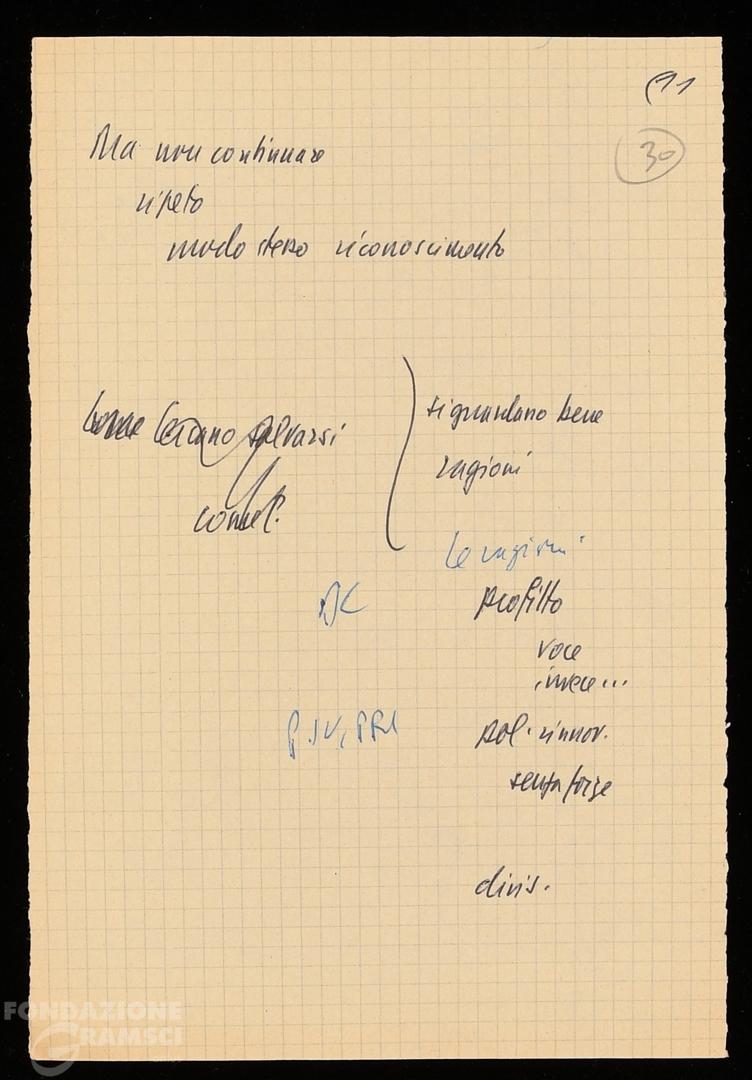 30
Ma non continuare
ripeto
modo stesso riconoscimento
cercano salvarsi
si guardano bene
ragioni
Le ragioni
DC
profitto
voce
invece...
PRI
pol. rinnov.
senza forze
divis.
FONDAZIONE
GRAMSCI